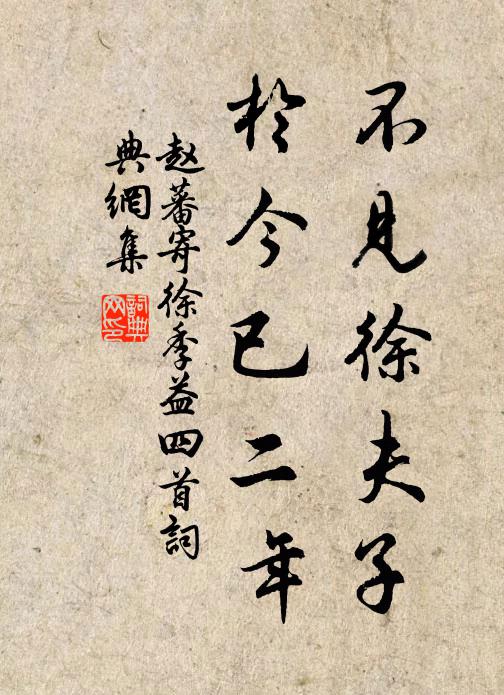 不見徐夫子
於今已二年
赵蕃寄徐季益四首詞
典網集
詞典
网印